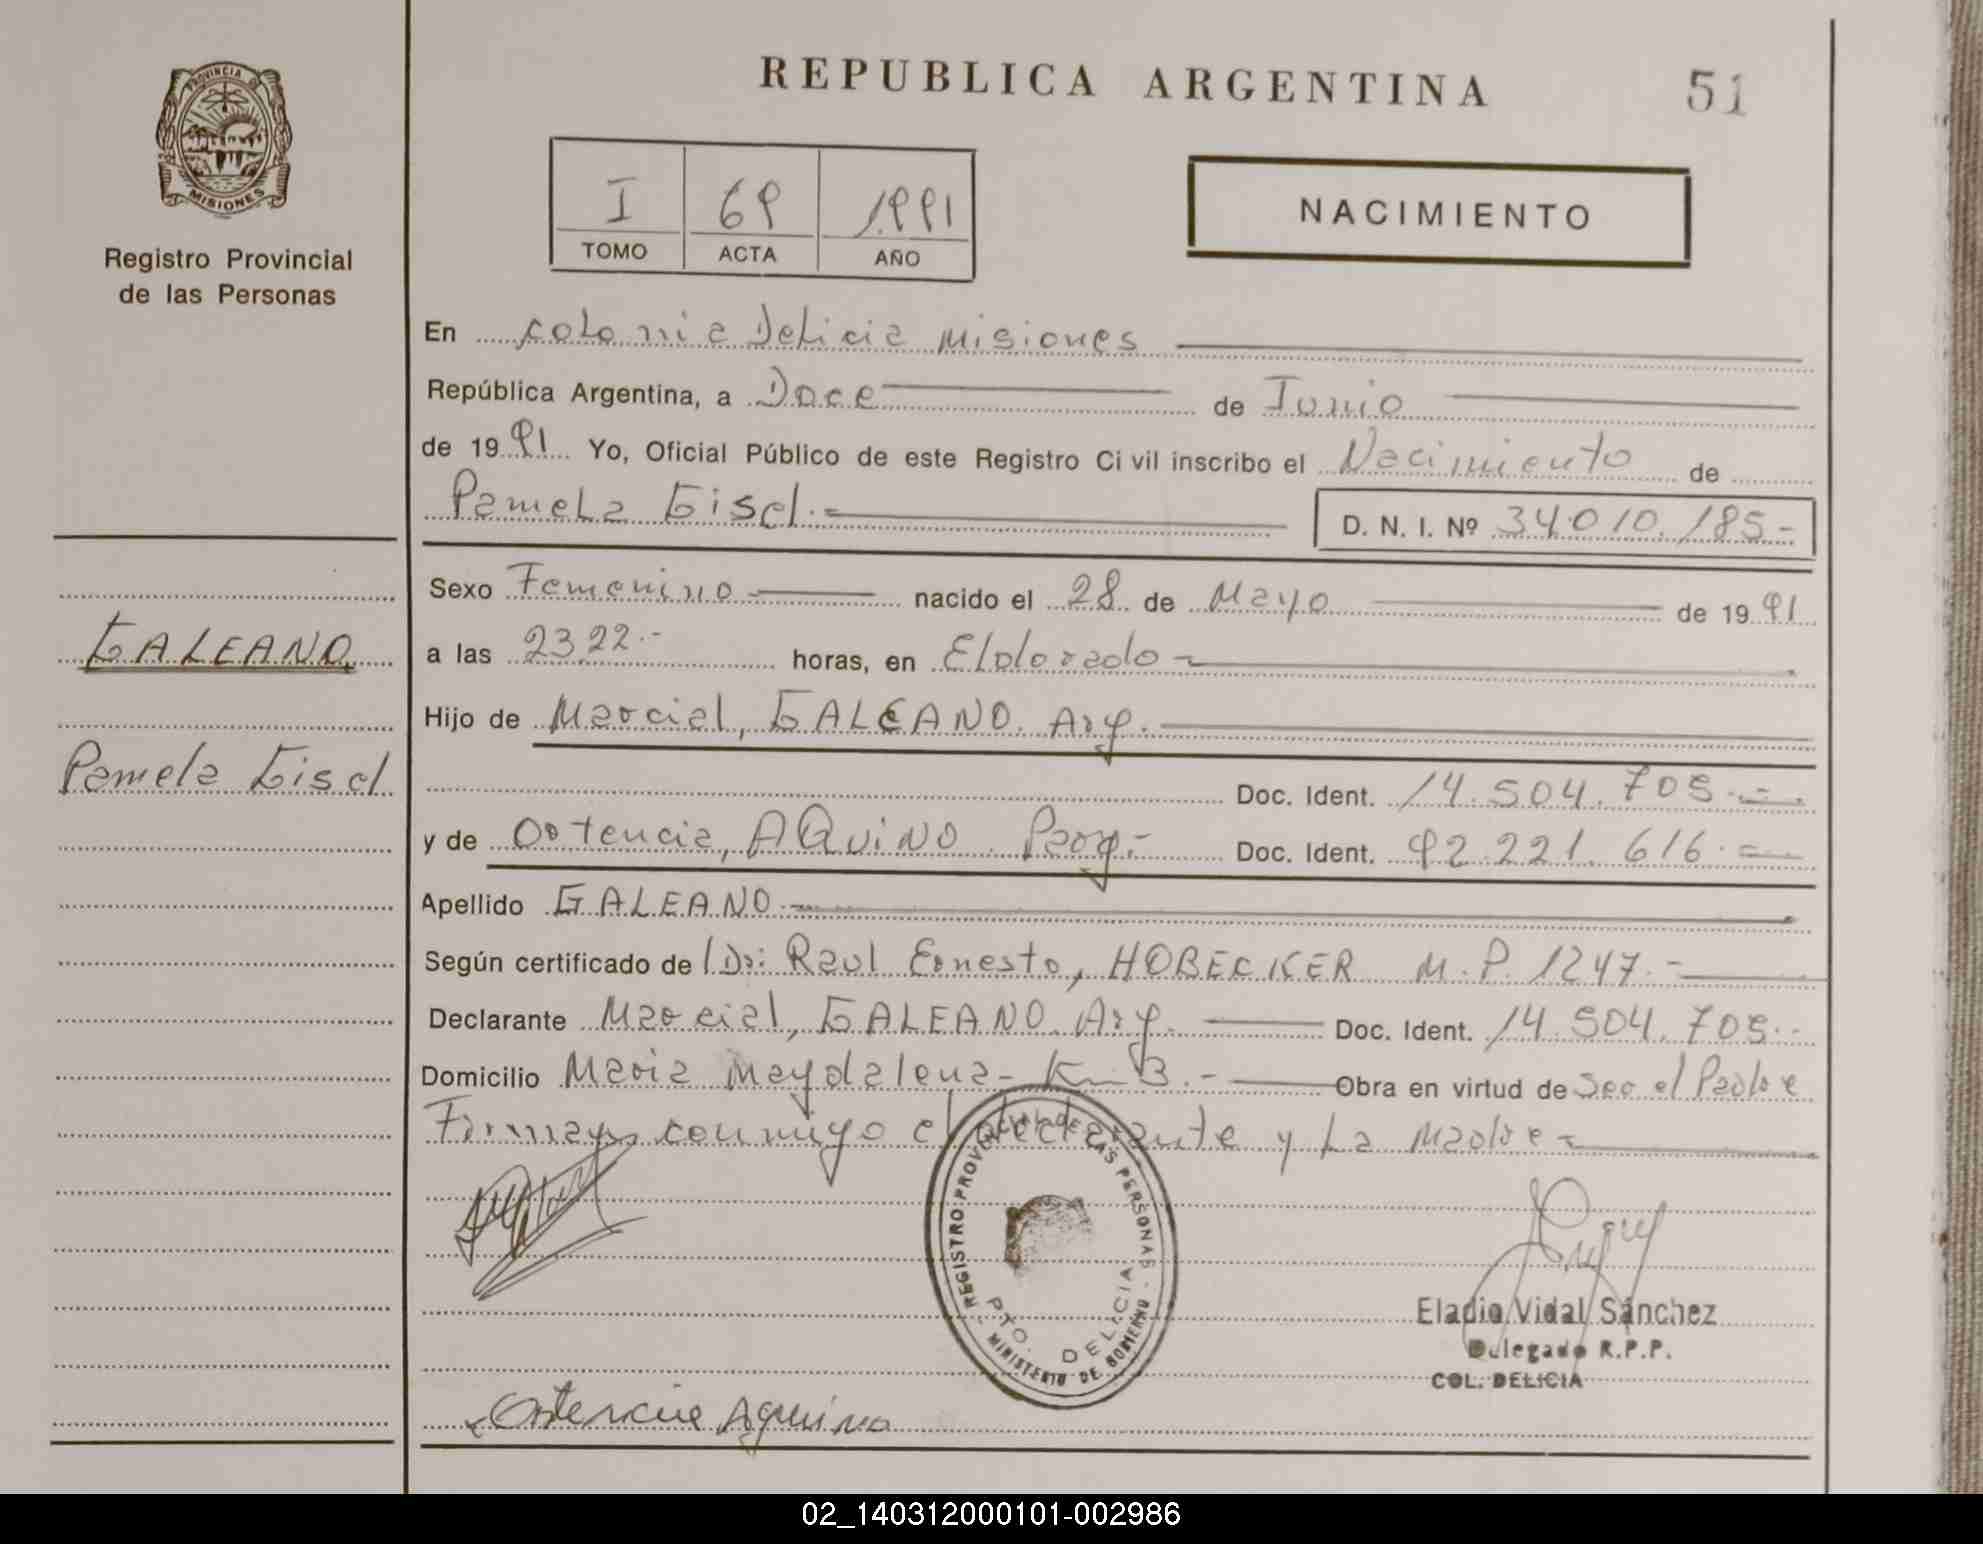 REPUBLICA ARGENTINA
51
PROVINCIA DE
MISIONES
Registro Provincial
de las Personas
I 69 1991
TOMO ACTA AÑO
NACIMIENTO
En Colonia Delicia Misiones
República Argentina, a Doce de Junio
de 1991 Yo, Oficial Público de este Registro Civil inscribo el Nacimiento de
Pamela Gisel.- D. N. I. Nº 34.010.185-
Sexo Femenino nacido el 28 de Mayo de 1991
GALEANO
a las 23,22.- horas, en Eldorado-
Hijo de Marcial, GALEANO. Arg.
Pamela Gisel
Doc. Ident. 14.504.705.-
y de Ortencia, AQUINO. Parg.- Doc. Ident. 92.221.616.-
Apellido GALEANO-
Según certificado de Dr: Raul Ernesto, HOBECKER M.P. 1247.-
Declarante Marcial, GALEANO. Arg. Doc. Ident. 14.504.705.-
Domicilio Maria Magdalena- Km 3.- Obra en virtud de Ser el Padre
Firman conmigo el declarante y La Madre-
REGISTRO PROVINCIAL DE LAS PERSONAS
PTO. DELICIA
MINISTERIO DE GOBIERNO
Eladio Vidal Sánchez
Delegado R.P.P.
COL. DELICIA
Ortencia Aquino
02_140312000101-002986